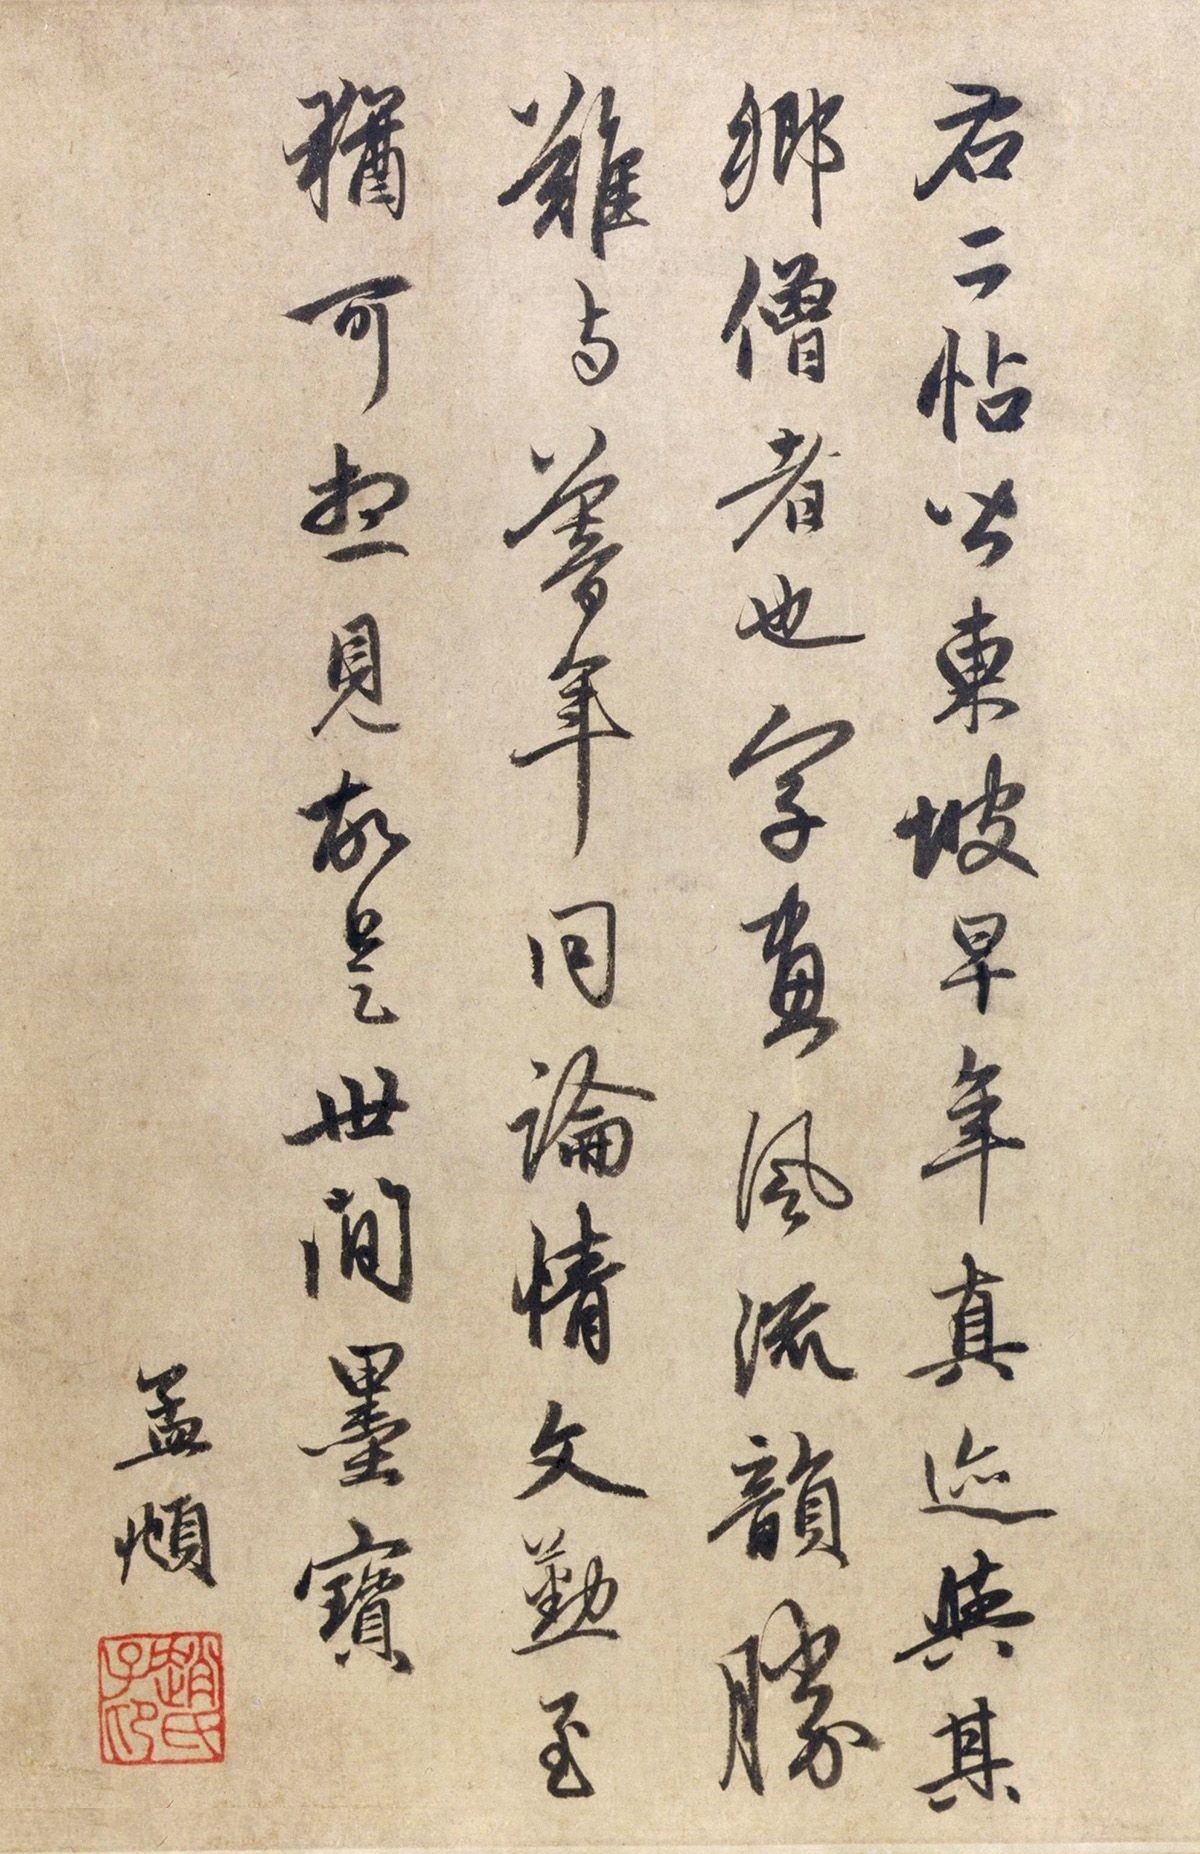 右二帖皆東坡早年真迹與其
鄉僧者也字畫風流韻勝
難与暮年同論情文勤至
猶可想見故是世間墨寶
孟頫
趙氏子印